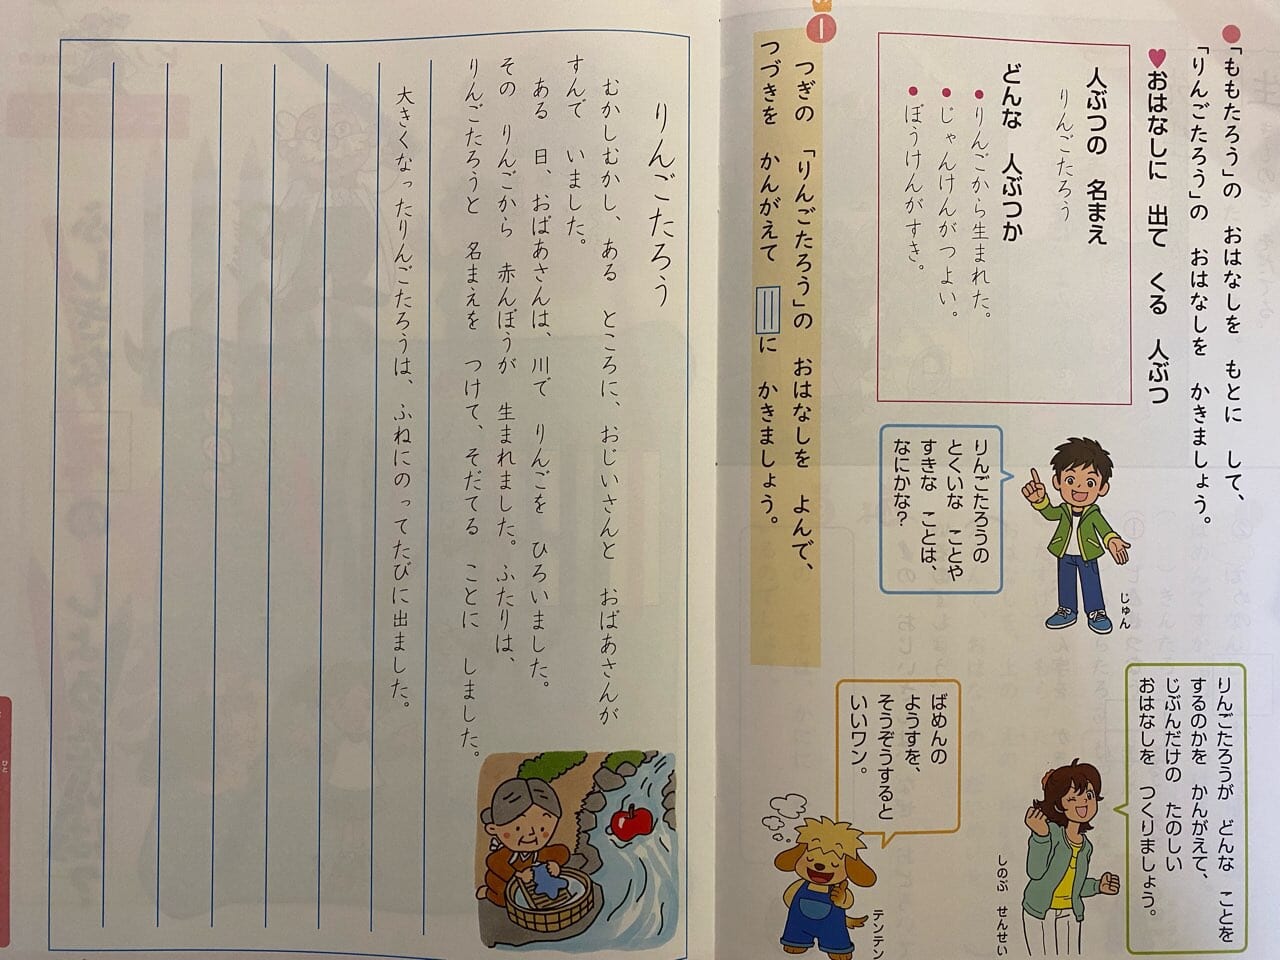 「ももたろう」の おはなしを もとに して、
「りんごたろう」の おはなしを かきましょう。
♥おはなしに 出て くる 人ぶつ
人ぶつの 名まえ
りんごたろう
どんな 人ぶつか
●りんごから生まれた。
●じゃんけんがつよい。
●ぼうけんがすき。
りんごたろうの
とくいな ことや
すきな ことは、
なにかな?
じゅん
りんごたろうが どんな ことを
するのかを かんがえて、
じぶんだけの たのしい
おはなしを つくりましょう。
しのぶ せんせい
ばめんの
ようすを、
そうぞうすると
いいワン。
テンテン
1
つぎの 「りんごたろう」の おはなしを よんで、
つづきを かんがえて に かきましょう。
りんごたろう
むかしむかし、ある ところに、おじいさんと おばあさんが
すんで いました。
ある 日、おばあさんは、川で りんごを ひろいました。
その りんごから 赤んぼうが 生まれました。ふたりは、
りんごたろうと 名まえを つけて、そだてる ことに しました。
大きくなったりんごたろうは、ふねにのってたびに出ました。
ひと